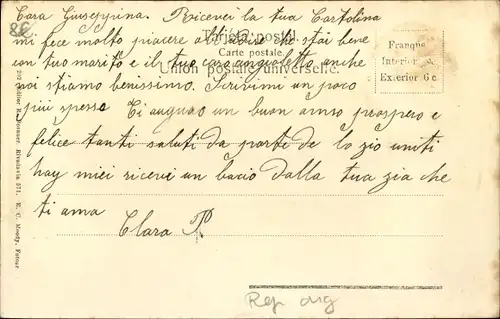 86
Cara Giuseppina. Ricevei la tua Cartolina
mi fece molto piacere al sapere che stai bene
con tuo marito e il tuo caro angioletto anche
noi stiamo benissimo. Scrivimi un poco
più spesso Ti auguro un buon anno prospero e
felice tanti saluti da parte de lo zio uniti
hay miei ricevi un bacio dalla tua zia che
ti ama
Clara P
Tarjeta postal.
Carte postale.
Union postale universelle.
Franqueo
Interior
Exterior 6 c
Editor R. Rosauer, Rivadavia 571. E. C. Moody, Fotogr.
Rep arg